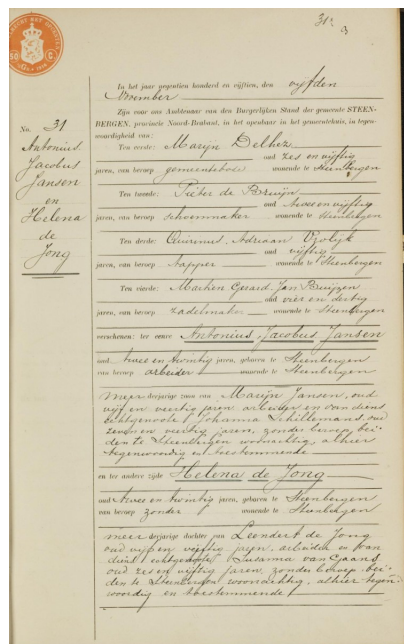 31
3
In het jaar negentien honderd en vijftien, den vijfden
November
Zijn voor ons Ambtenaar van den Burgerlijken Stand der gemeente STEEN-
BERGEN, provincie Noord-Brabant, in het openbaar in het gemeentehuis, in tegen-
woordigheid van:
No. 31
Antonius
Jacobus
Jansen
en
Helena
de
Jong
Ten eerste: Marijn Delhez
oud zes en vijftig
jaren, van beroep gemeentebode wonende te Steenbergen
Ten tweede: Pieter de Bruijn
oud twee en vijftig
jaren, van beroep schoenmaker wonende te Steenbergen
Ten derde: Quirinus Adriaan
oud vijftig
jaren, van beroep tapper wonende te Steenbergen
Ten vierde: Gerard Jan Bruijzen
oud vier en dertig
jaren, van beroep zadelmaker wonende te Steenbergen
verschenen: ter eenre Antonius Jacobus Jansen
oud twee en twintig jaren, geboren te Steenbergen
van beroep arbeider wonende te Steenbergen
meerderjarige zoon van Marijn Jansen, oud
vijf en veertig jaren arbeider en van diens
echtgenoote Johanna Schillemans, oud
zeven en veertig jaren, zonder beroep, bei-
den te Steenbergen woonachtig, alhier
tegenwoordig en toestemmende
en ter andere zijde Helena de Jong
oud twee en twintig jaren, geboren te Steenbergen
van beroep zonder wonende te Steenbergen
meerderjarige dochter van Leendert de Jong
oud vijf en vijftig jaren, arbeider en van
diens echtgenoote Susanna van
oud zes en vijftig jaren zonder beroep, bei-
den te Steenbergen woonachtig, alhier tegen-
woordig en toestemmende